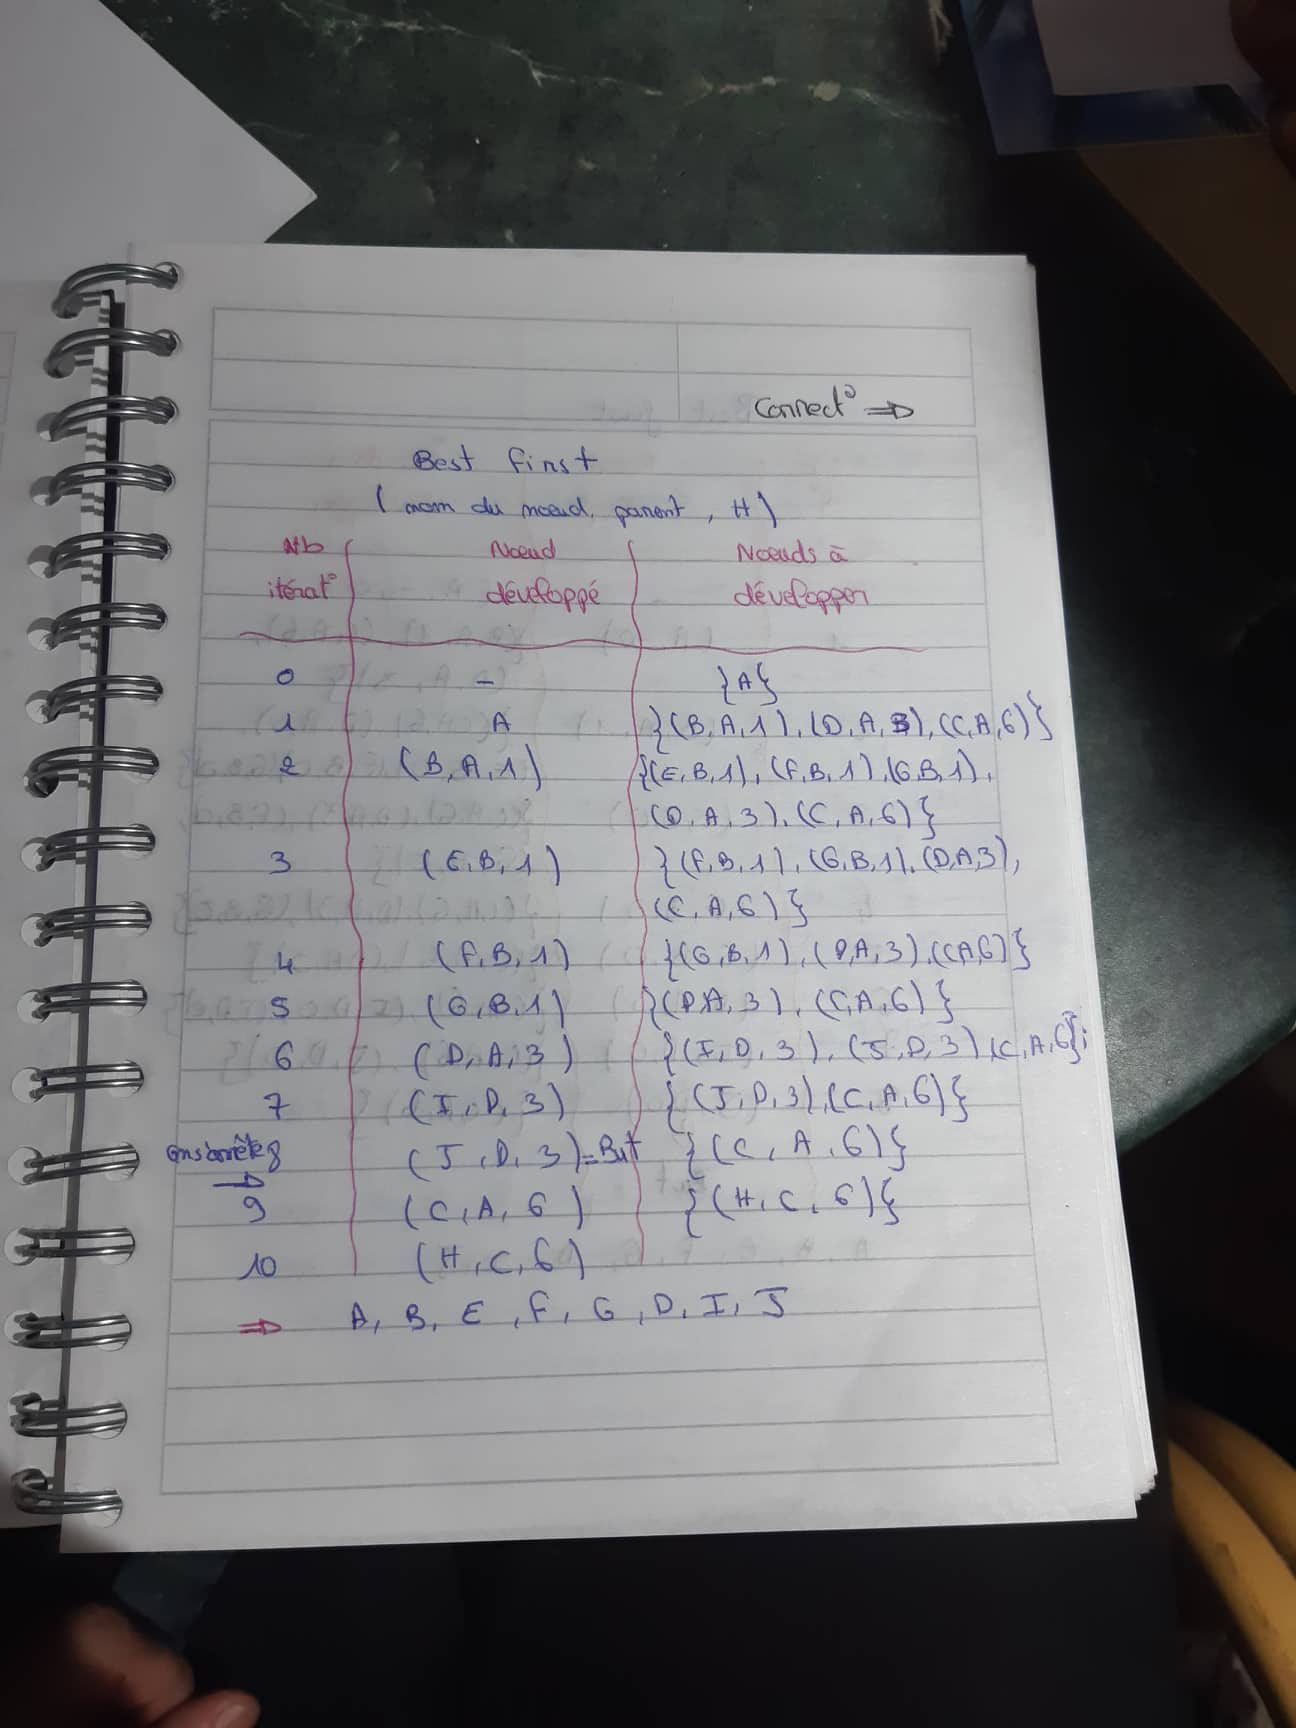 Connect° ⇒
Best first
( nom du noeud, parent, H)
Nb Noeud Noeuds à
itérat° développé développer
0 - {A}
1 A {(B,A,1), (D,A,3), (C,A,6)}
2 (B,A,1) {(E,B,1), (F,B,1), (G,B,1),
(D,A,3), (C,A,6)}
3 (E,B,1) {(F,B,1), (G,B,1), (D,A,3),
(C,A,6)}
4 (F,B,1) {(G,B,1), (D,A,3), (C,A,6)}
5 (G,B,1) {(D,A,3), (C,A,6)}
6 (D,A,3) {(I,D,3), (J,D,3), (C,A,6)};
7 (I,D,3) {(J,D,3), (C,A,6)}
on s'arrête 8 (J,D,3) = But {(C,A,6)}
→
9 (C,A,6) {(H,C,6)}
10 (H,C,6)
⇒ A, B, E, F, G, D, I, J